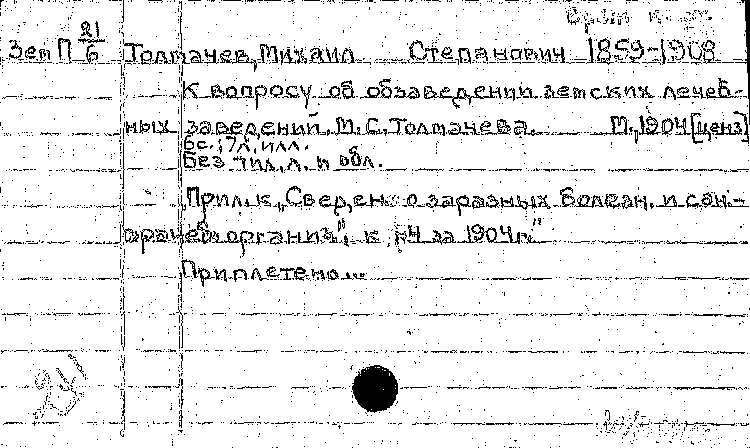 21
Зем П 6 Толмачев, Михаил Степанович 1859-1908
К вопросу об обзаведении земских лечеб-
ных заведений. М.С.Толмачева. М.,1904 [ценз]
6с.; 7л. илл.
Без тит. л. и обл.
"Прил. к "Сведен. о заразных болезн. и сан.-
врачеб. организ.", к №4 за 1904г."
Приплетено...